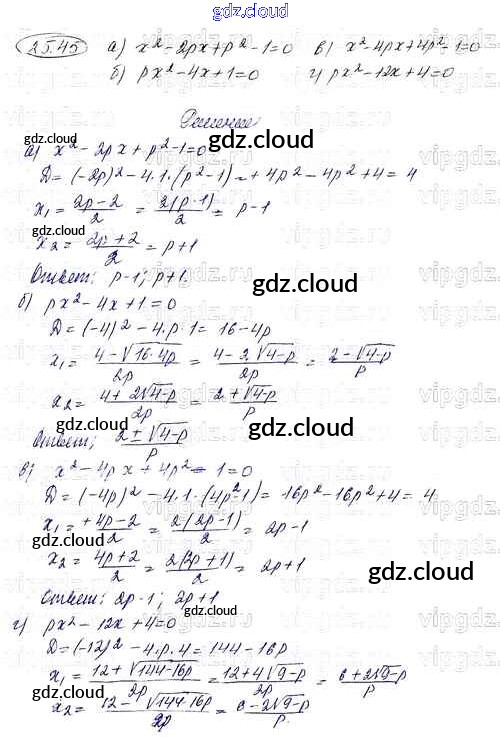 gdz.cloud
25.45 а) x² - 2px + p² - 1 = 0 в) x² - 4px + 4p² - 1 = 0
б) px² - 4x + 1 = 0 г) px² - 12x + 4 = 0
Решение
gdz.cloud
gdz.cloud
а) x² - 2px + p² - 1 = 0
D = (-2p)² - 4·1·(p² - 1) = + 4p² - 4p² + 4 = 4
x₁ = (2p - 2)/2 = 2(p - 1)/2 = p - 1
gdz.cloud
x₂ = (2p + 2)/2 = p + 1
Ответ: p - 1; p + 1.
gdz.cloud
б) px² - 4x + 1 = 0
D = (-4)² - 4·p·1 = 16 - 4p
x₁ = (4 - √(16·4p))/2p = (4 - 2√(4-p))/2p = (2 - √(4-p))/p
gdz.cloud
x₂ = (4 + 2√(4-p))/2p = (2 + √(4-p))/p
gdz.cloud
Ответ; (2 ± √(4-p))/p
в) x² - 4px + 4p² - 1 = 0
D = (-4p)² - 4·1·(4p² - 1) = 16p² - 16p² + 4 = 4
x₁ = (+4p - 2)/2 = 2(2p - 1)/2 = 2p - 1
gdz.cloud
x₂ = (4p + 2)/2 = 2(2p + 1)/2 = 2p + 1
gdz.cloud
Ответ: 2p - 1; 2p + 1
gdz.cloud
г) px² - 12x + 4 = 0
D = (-12)² - 4·p·4 = 144 - 16p
x₁ = (12 + √(144-16p))/2p = (12 + 4√(9-p))/2p = (6 + 2√(9-p))/p
gdz.cloud
x₂ = (12 - √(144-16p))/2p = (6 - 2√(9-p))/p